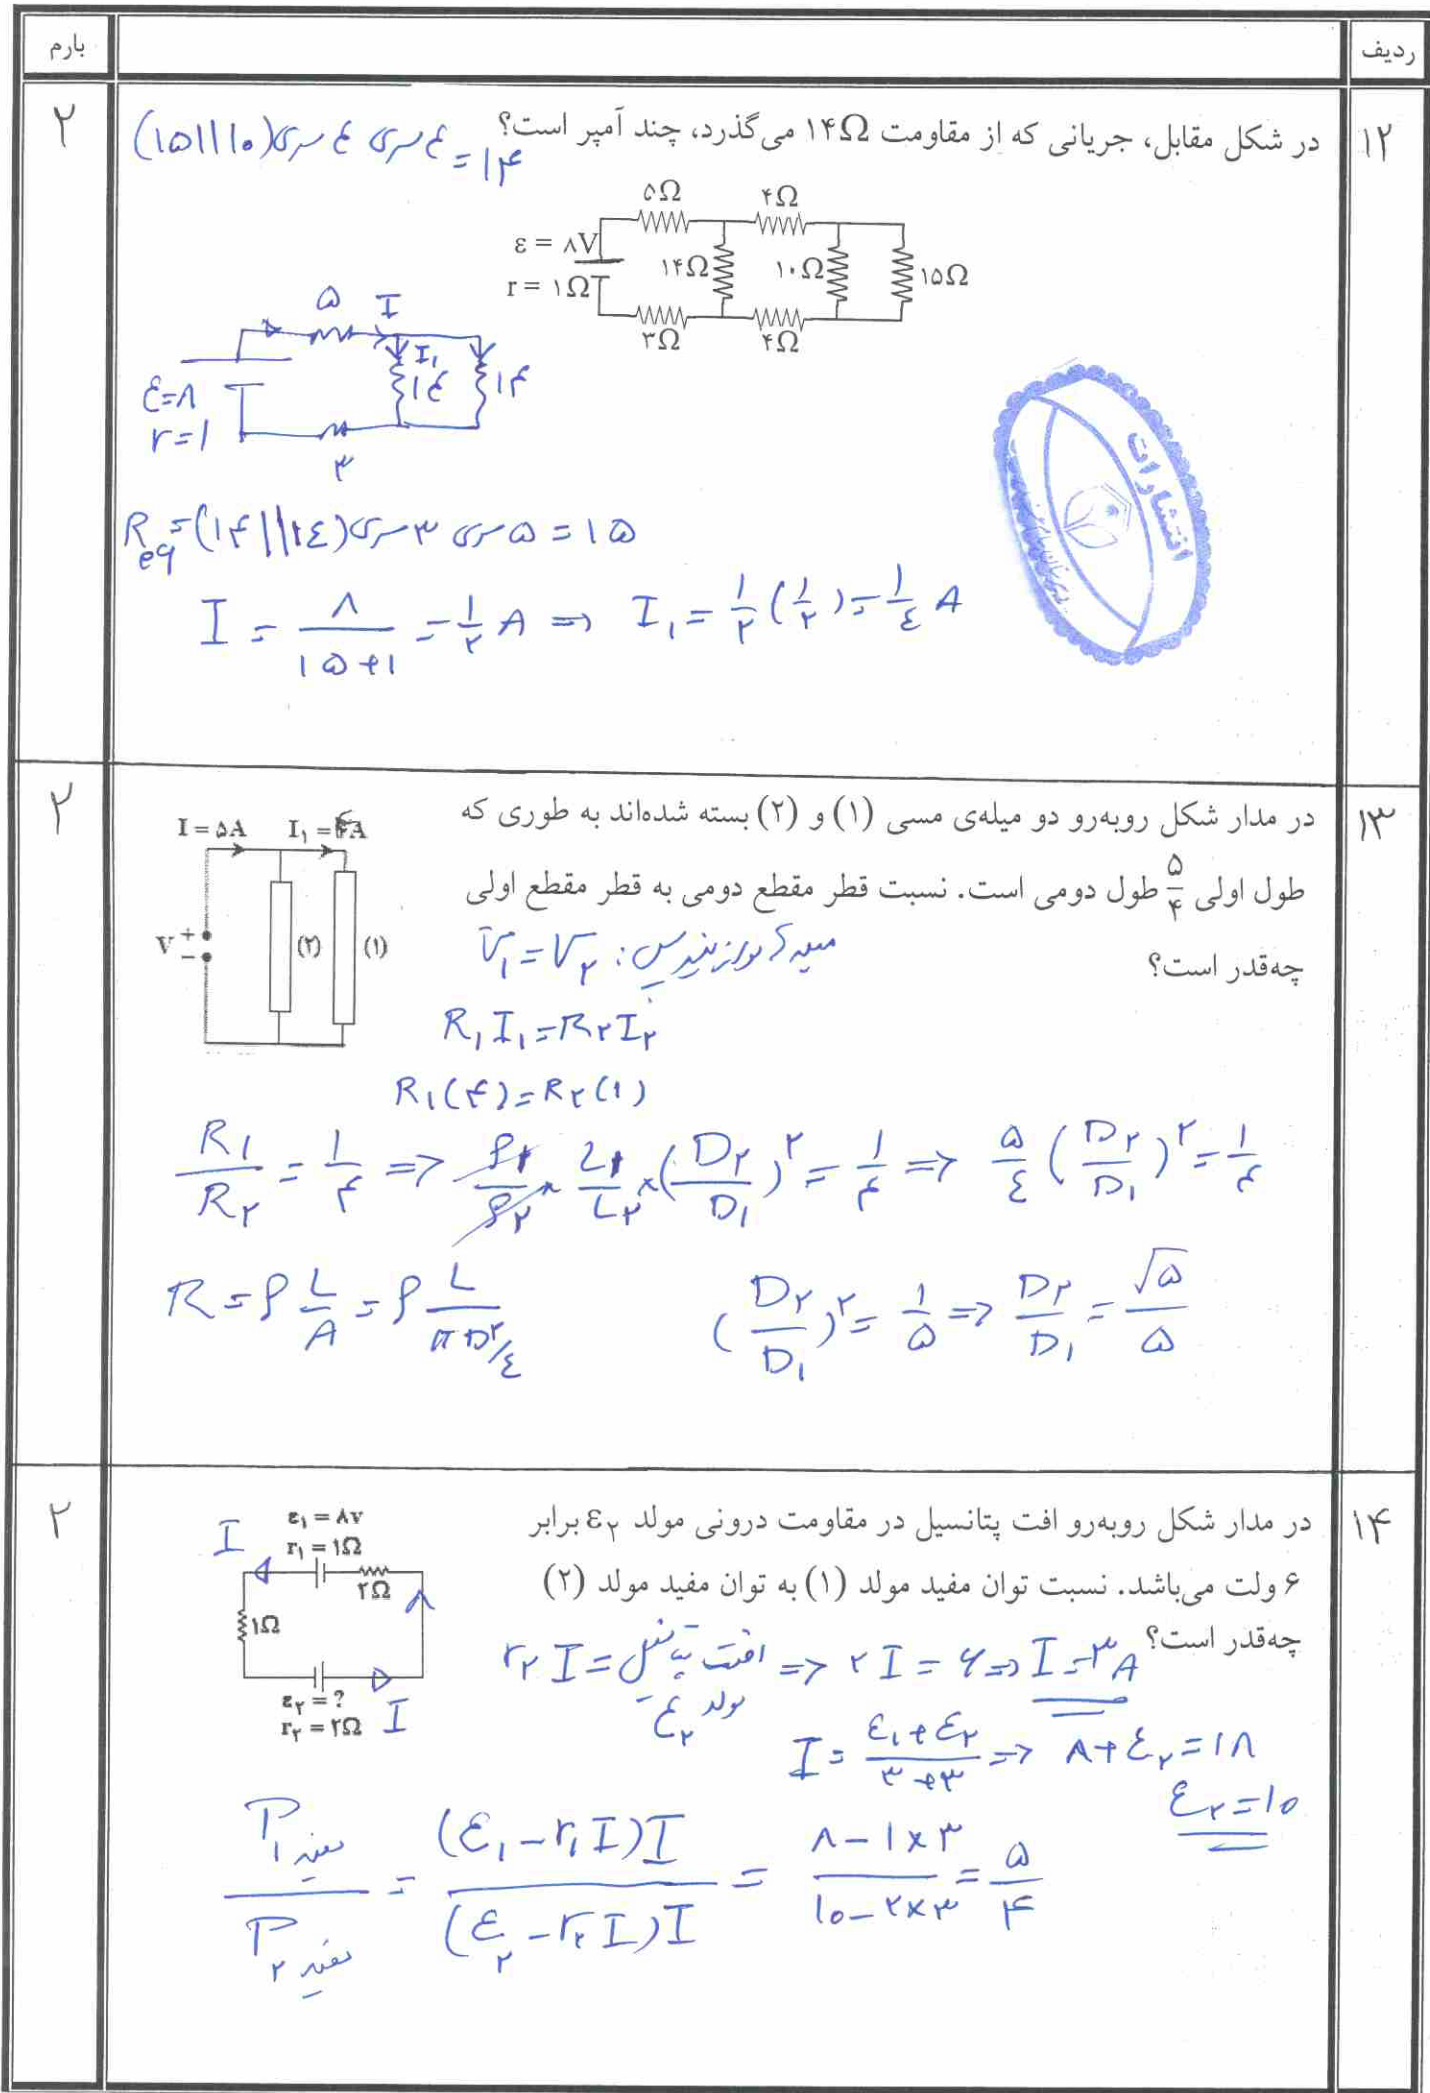 ردیف
بارم
۱۲
۲
در شکل مقابل، جریانی که از مقاومت ۱۴Ω می‌گذرد، چند آمپر است؟
(۱۵||۱۰) سری ۴ سری ۴ = ۱۴
۵Ω
۴Ω
ε = ۸V
r = ۱Ω
۱۴Ω
۱۰Ω
۱۵Ω
۳Ω
۴Ω
۵
I
I₁
۱۴
۱۴
ε=۸
r=۱
۳
R eq = (۱۴||۱۴) سری ۳ سری ۵ = ۱۵
I = ۸/(۱۵+۱) = ۱/۲ A => I₁ = ۱/۲ (۱/۲) = ۱/۴ A
انتشارات
۱۳
۲
در مدار شکل روبه‌رو دو میله‌ی مسی (۱) و (۲) بسته شده‌اند به طوری که
طول اولی ۵/۴ طول دومی است. نسبت قطر مقطع دومی به قطر مقطع اولی
چه‌قدر است؟
I = ۵A
I₁ = ۴A
V
+
−
(۲)
(۱)
پس: V₁ = V₂
R₁I₁ = R₂I₂
R₁(۴) = R₂(۱)
R₁/R₂ = ۱/۴ => ρ₁/ρ₂ × L₁/L₂ × (D₂/D₁)² = ۱/۴ => ۵/۴ (D₂/D₁)² = ۱/۴
R = ρ L/A = ρ L/(πD²/۴)
(D₂/D₁)² = ۱/۵ => D₂/D₁ = √۵/۵
۱۴
۲
در مدار شکل روبه‌رو افت پتانسیل در مقاومت درونی مولد ε₂ برابر
۶ ولت می‌باشد. نسبت توان مفید مولد (۱) به توان مفید مولد (۲)
چه‌قدر است؟
ε₁ = ۸v
r₁ = ۱Ω
۲Ω
۱Ω
ε₂ = ?
r₂ = ۲Ω
I
I
r₂I = افت پتانسیل مولد ε₂ => ۲I = ۶ => I = ۳A
I = (ε₁+ε₂)/(۳+۳) => ۸+ε₂ = ۱۸
ε₂ = ۱۰
P₁ مفید / P₂ مفید = (ε₁ − r₁I)I / (ε₂ − r₂I)I = (۸ − ۱×۳)/(۱۰ − ۲×۳) = ۵/۴